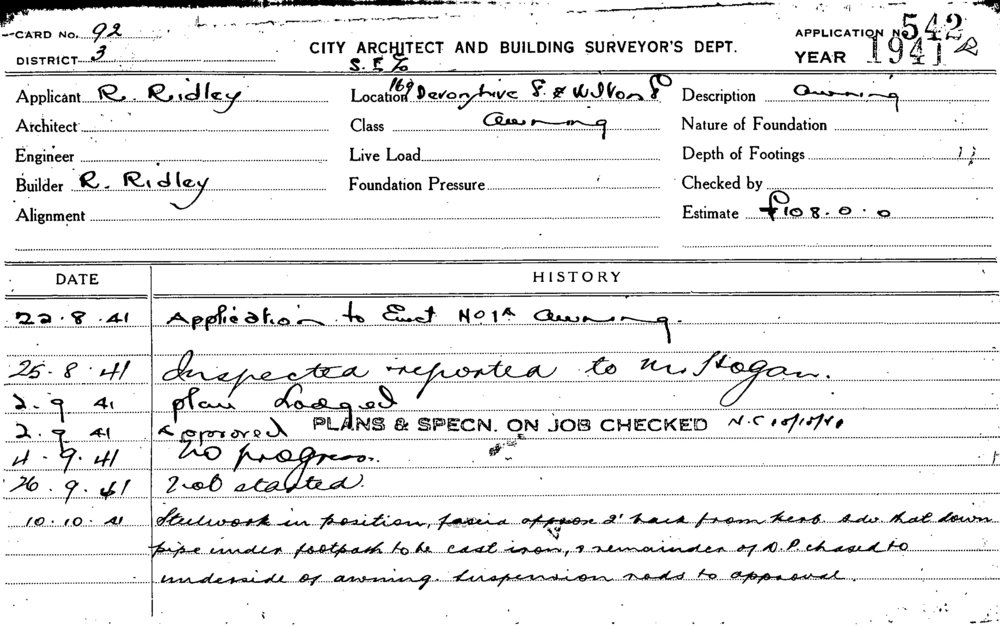 CARD No. 92
DISTRICT 3
CITY ARCHITECT AND BUILDING SURVEYOR'S DEPT.
APPLICATION No 542
YEAR 1941
Applicant R. Ridley
Location 169 Devonshire S. & Wilton S
Description awning
Architect
Class awning
Nature of Foundation
Engineer
Live Load
Depth of Footings
Builder R. Ridley
Foundation Pressure
Checked by
Alignment
Estimate £108.0.0
DATE HISTORY
22.8.41 Application to Erect No 1A awning.
25.8.41 Inspected reported to Mr Hogan.
2.9 41 plan Lodged
2.9 41 Approved PLANS & SPECN. ON JOB CHECKED N.C
4.9.41 No progress.
26.9.41 Not started.
10.10.41 Steelwork in position, fascia approx 2' back from kerb adv that down
pipe under footpath to be cast iron, & remainder of D.P. chased to
underside of awning. Suspension rods to approval.